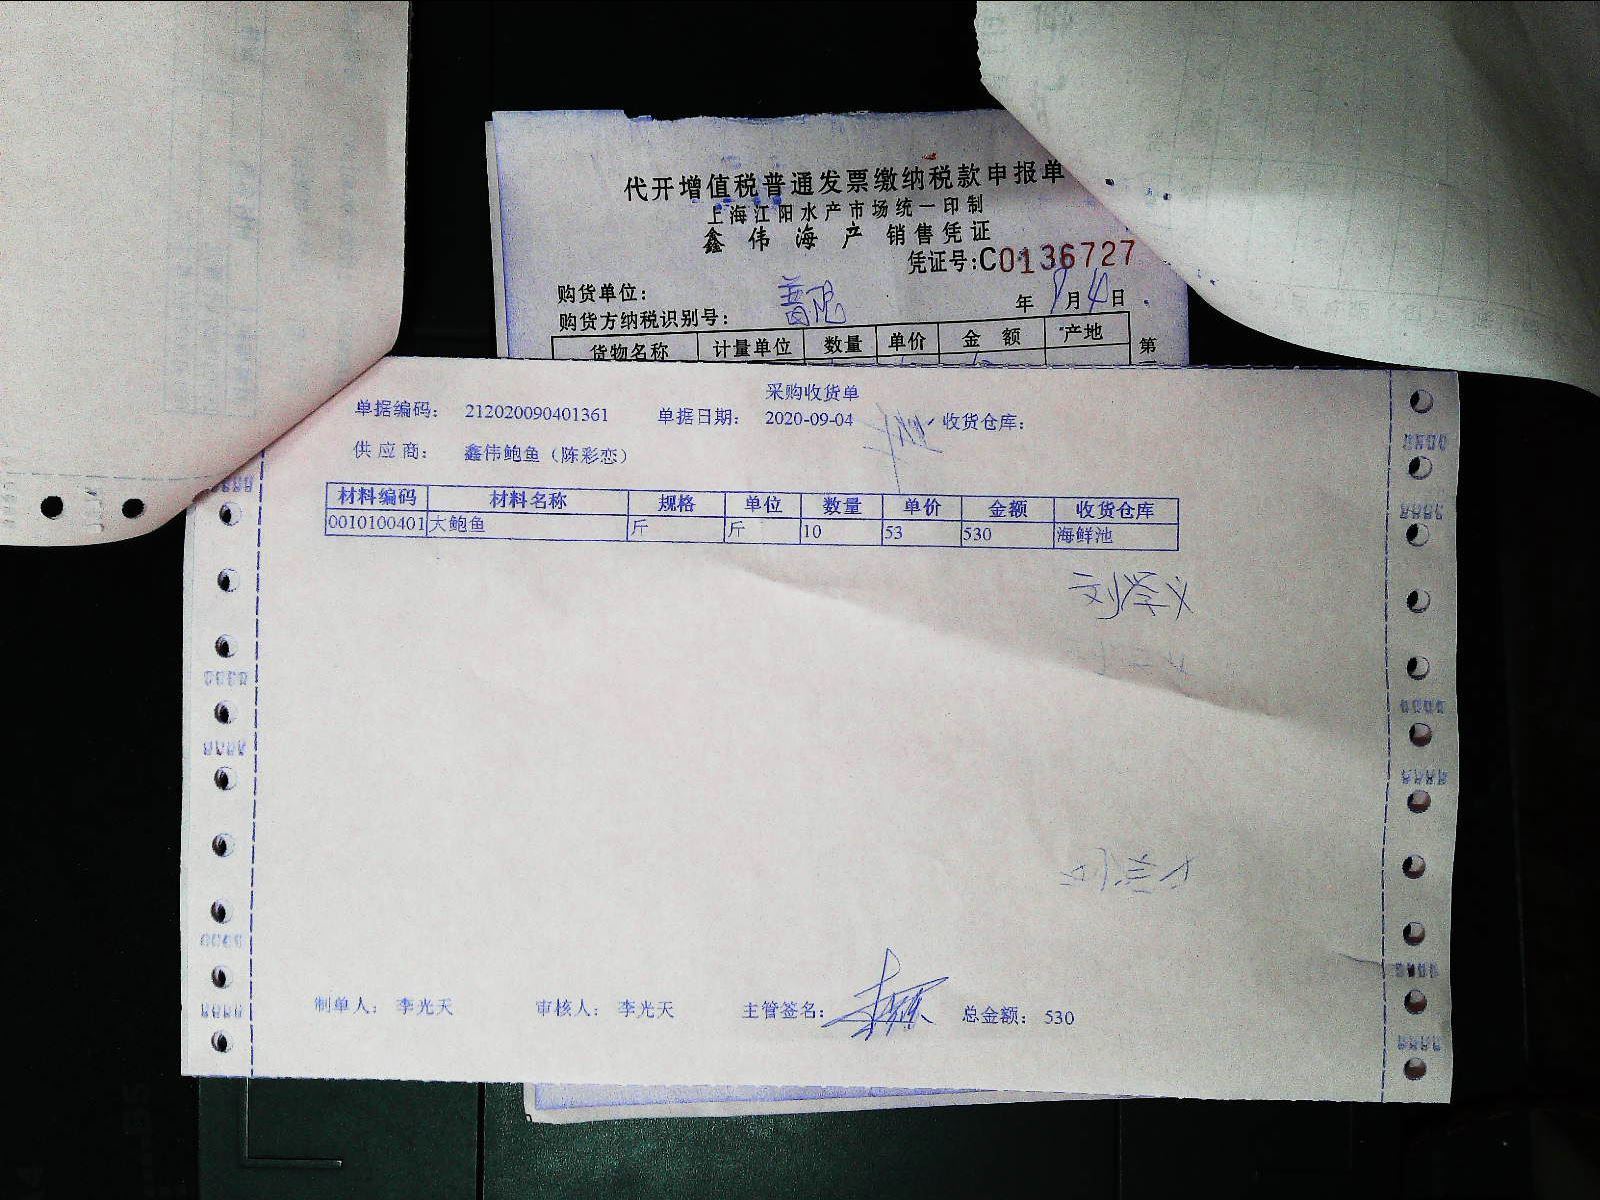 代开增值税普通发票缴纳税款申报单
上海江阳水产市场统一印制
鑫伟海产 销售凭证
凭证号:C0136727
购货单位:
年 9月4日
购货方纳税识别号:
货物名称 计量单位 数量 单价 金额 产地 第
采购收货单
单据编码: 212020090401361 单据日期: 2020-09-04 收货仓库:
供应商: 鑫伟鲍鱼（陈彩恋）
材料编码 材料名称 规格 单位 数量 单价 金额 收货仓库
0010100401 大鲍鱼 斤 斤 10 53 530 海鲜池
刘学义
制单人: 李光天 审核人: 李光天 主管签名: 总金额: 530